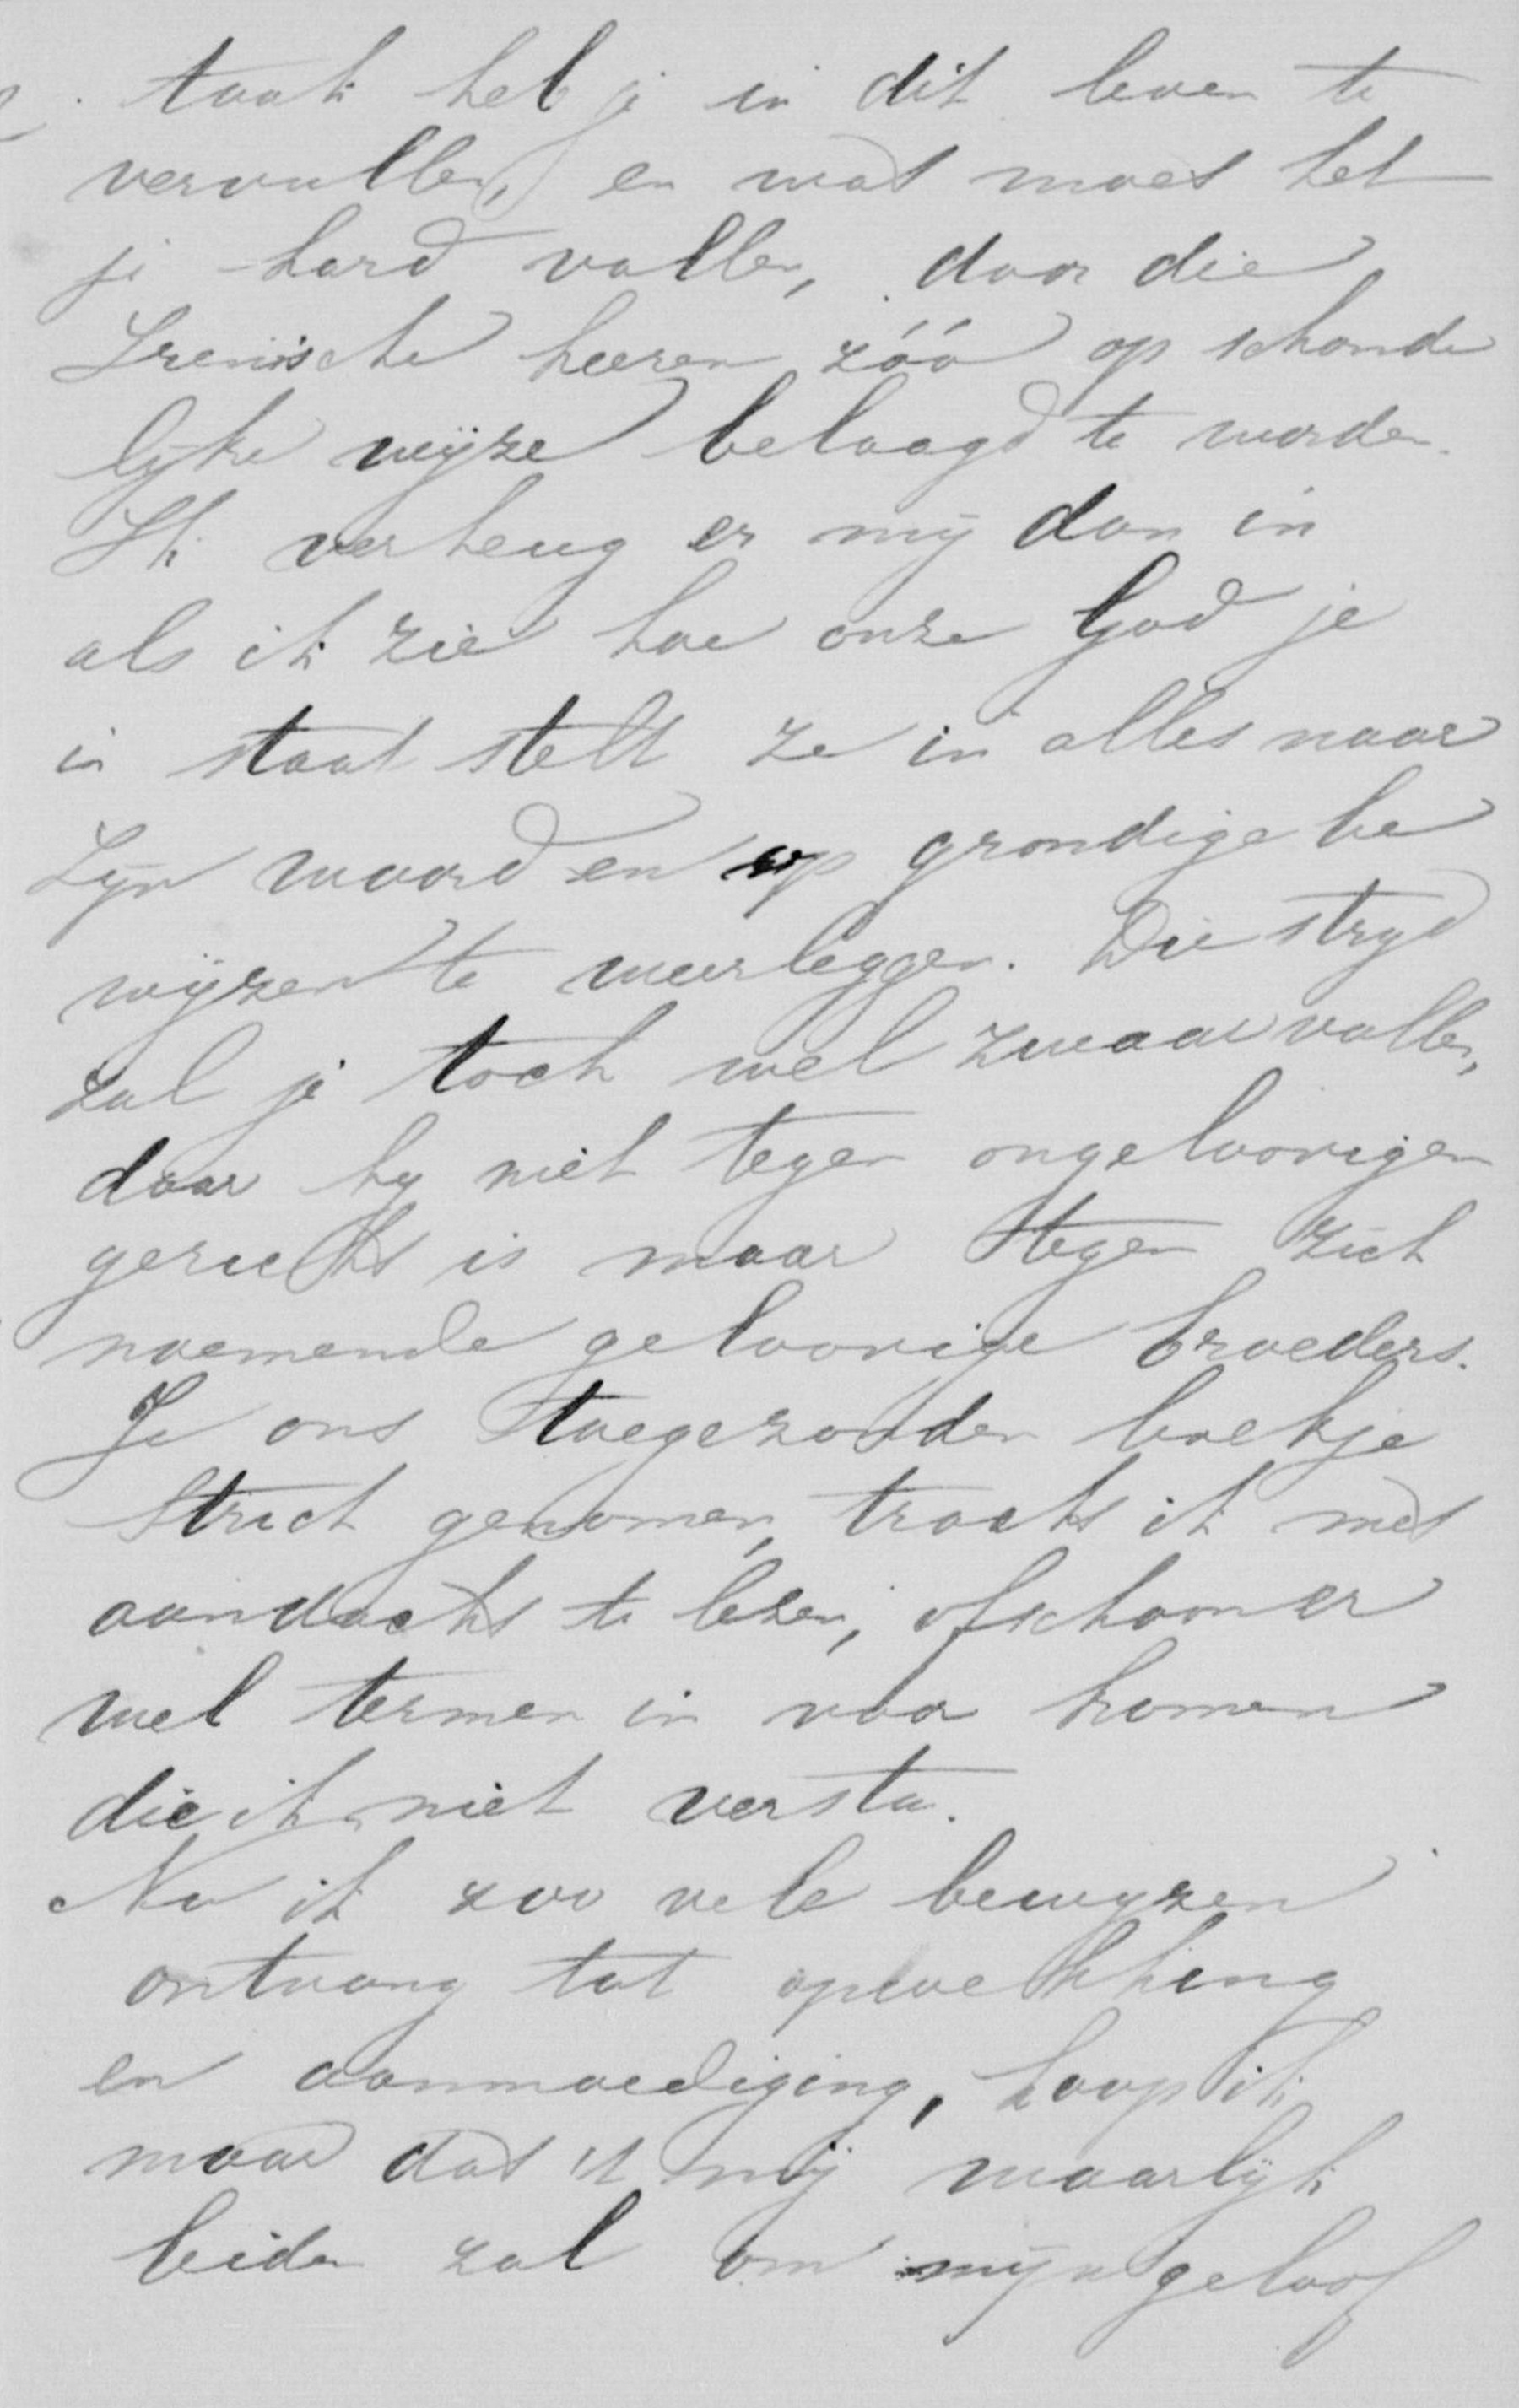 taak heb je in dit leven te
vervullen, en wat moet het
je hard vallen, door die
Irenische heeren zóó op schande
lijke wijze belaagd te worden.
Ik verheug er mij dan in
als ik zie hoe onze God je
in staat stelt ze in alles naar
Zijn woord en op grondige be
wijzen te weerleggen. Die strijd
zal je toch wel zwaar vallen,
daar hij niet tegen ongeloovigen
gericht is maar tegen zich
noemende geloovige broeders.
Je ons toegezonden boekje
Strict genomen, tracht ik met
aandacht te lezen, ofschoon er
wel termen in voor komen
die ik niet versta.
Nu ik zoo vele bewijzen
ontvang tot opwekking
en aanmoediging, hoop ik
maar dat 't mij waarlijk
leiden zal om mijn geloof